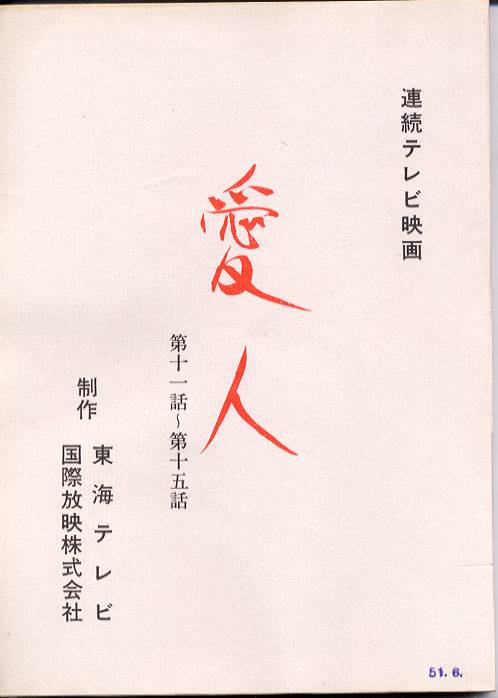 連続テレビ映画
愛人
第十一話〜第十五話
制作
東海テレビ
国際放映株式会社
51.6.